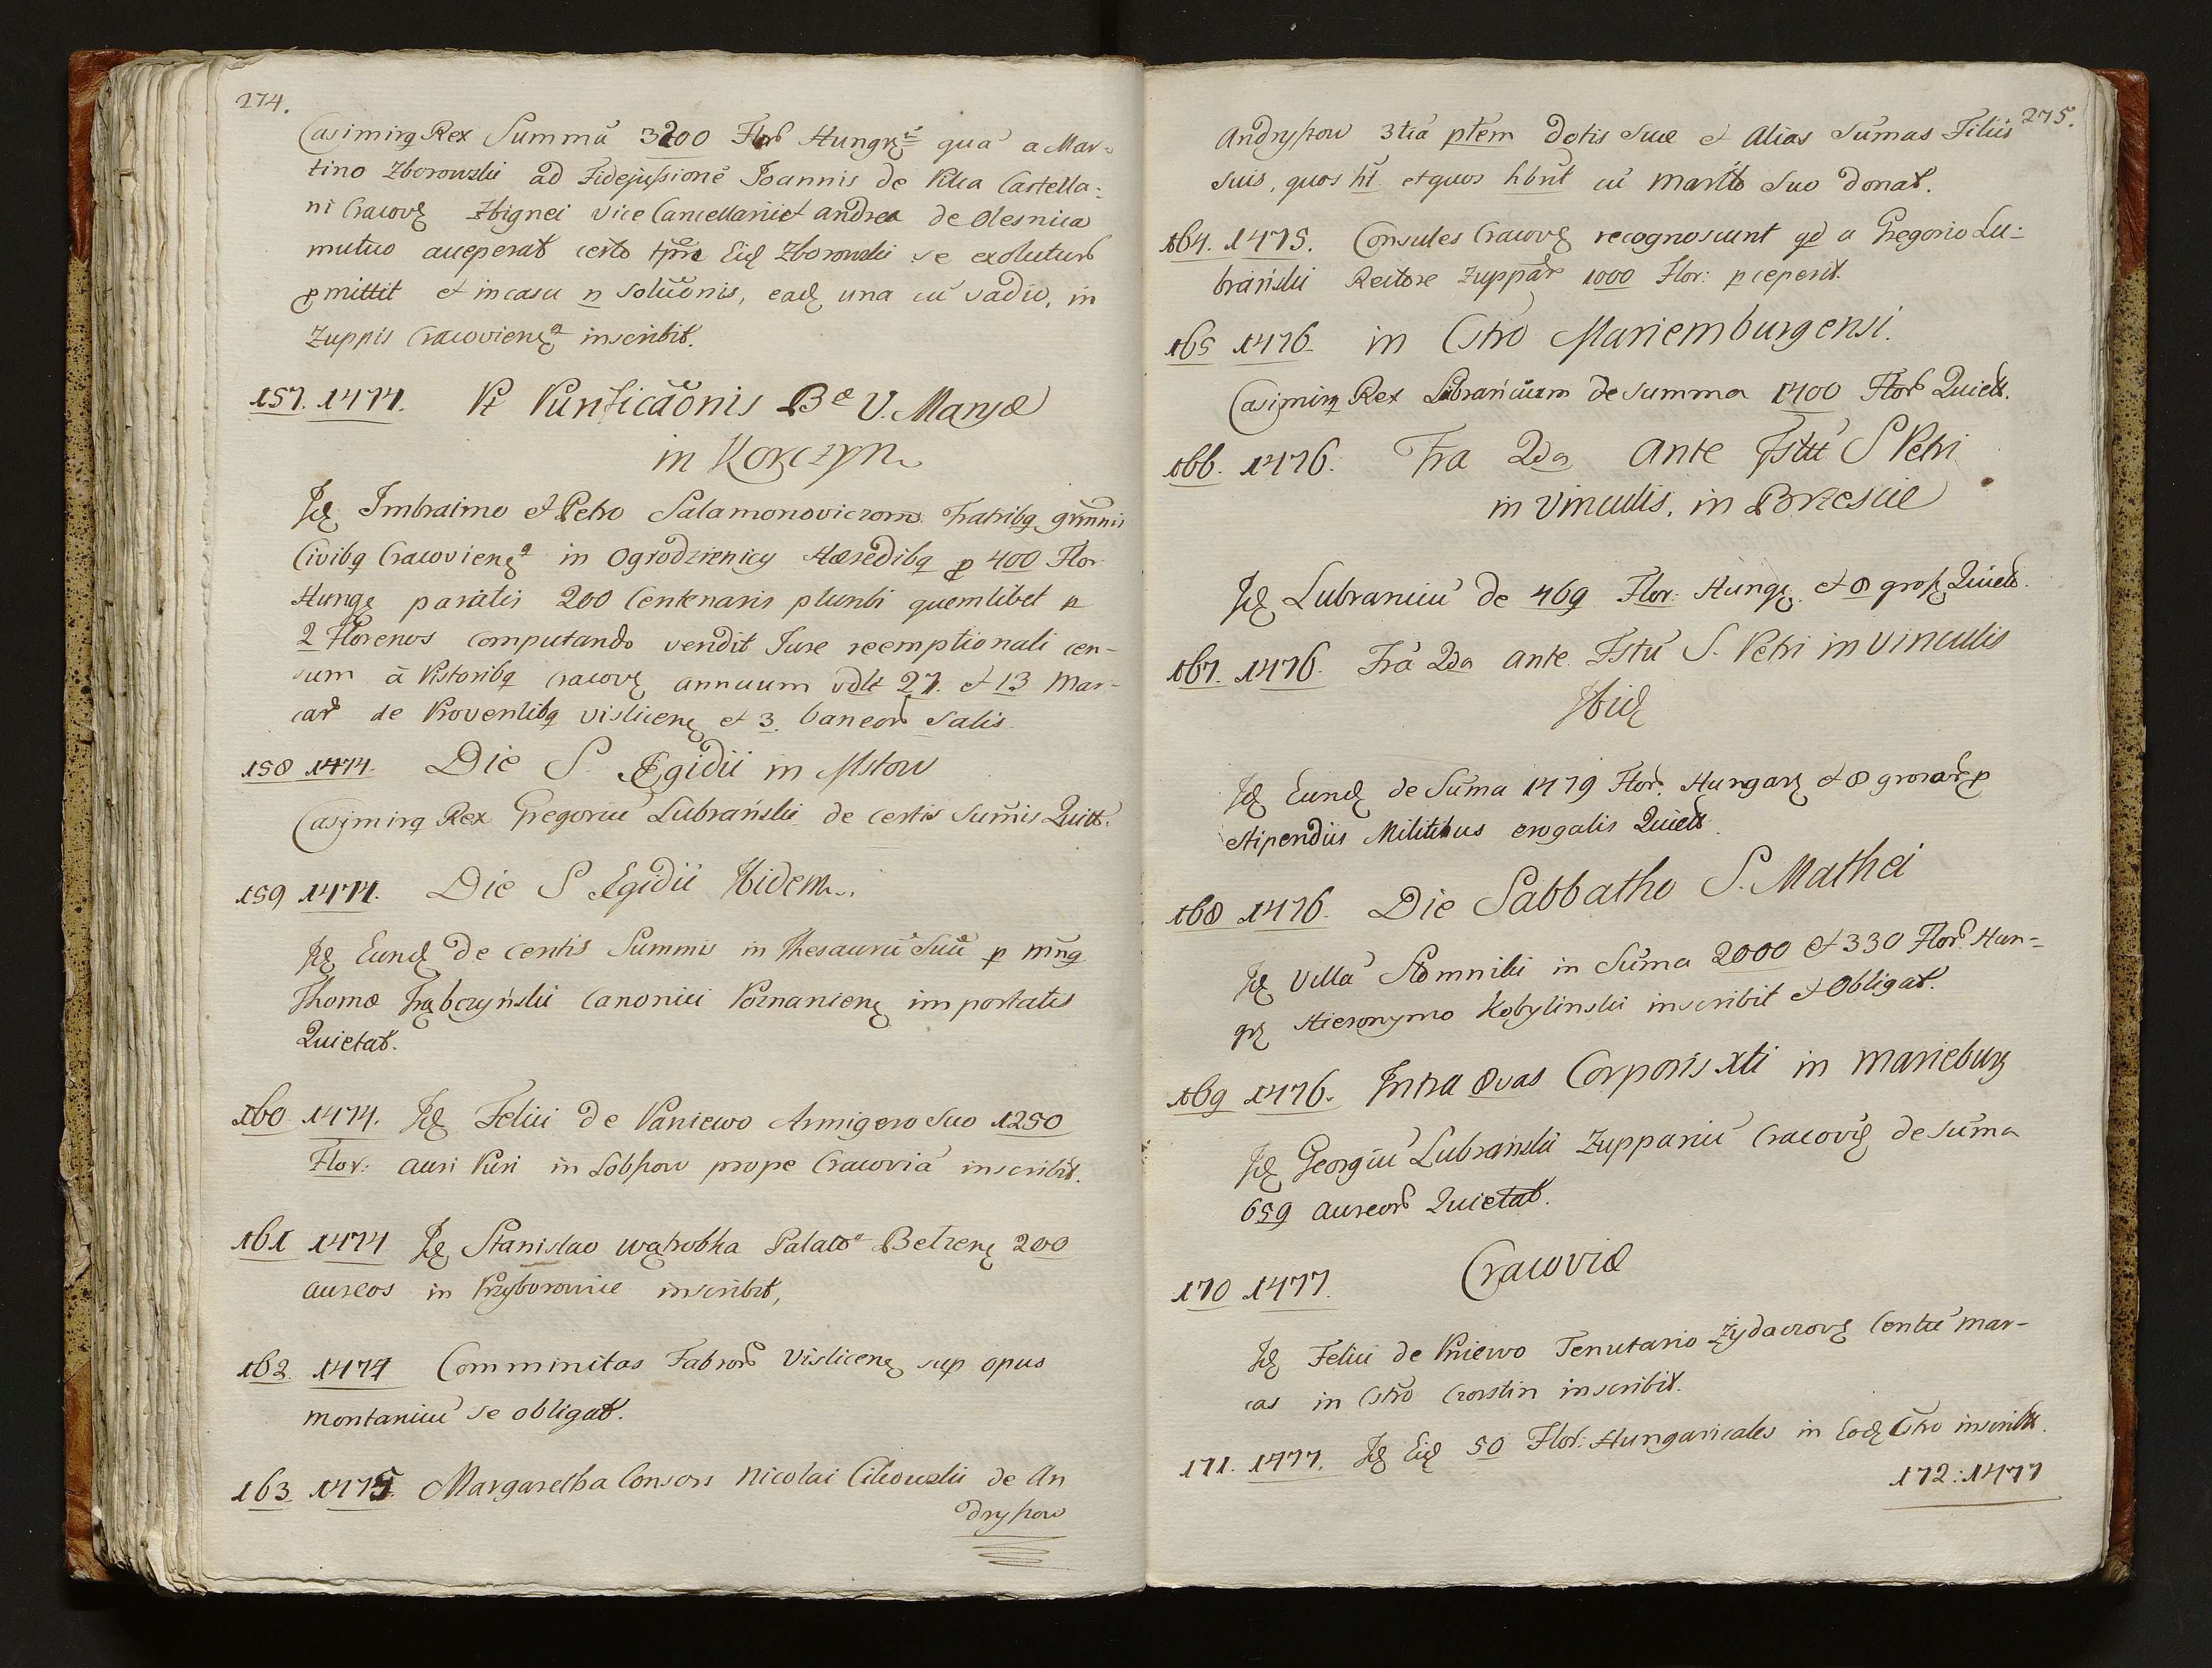 274.
Casimirꝗ Rex Summā 3200 Flor Hungʒ quā a Mar-
tino Zborowski ad Fidejussionē Joannis de Pilca Castella-
ni Cracovʒ Zbignei Vice Cancellarii et Andrea de Olesnica
mutuo acceperat certo tp̄re Eidʒ Zborowski se exoluturū
ꝓmittit et in casu n̄ solūonis, eadʒ una cū vadio, in
Zuppis Cracovienʒ inscribit.
157. 1474. Pt Purificāonis Bæ V. Mariæ
in Korczyn
Idʒ Imbraimo et Petro Salamonowiczom Fratribꝗ gm̄nis
Civibꝗ Cracovienʒ in Ogrodzienicy Hæredibꝗ ꝓ 400 Flor
Hungʒ paratis 200 Centenaris plumbi quemlibet p
2 Florenos computando vendit Jure reemptionali cen-
sum à Pistoribꝗ Cracovʒ annuum vdlt 27. et 13 Mar-
car de Proventibꝗ Vislicenʒ et 3. baneor Salis
158 1474. Die S. Ægidii in Mstow
Casimirꝗ Rex Gregoriū Lubrański de certis Sum̄is Quitt.
159 1474. Die S Ægidii Ibidem.
Idʒ Eundʒ de certis Summis in Thesaurū Suū p mn̄ꝗ
Thomæ Trąbczyński Canonici Poznanienʒ importatis
Quietat.
160 1474. Idʒ Felici de Paniewo Armigero Suo 1250
Flor: auri Puri in Łobzow prope Cracoviā inscribit.
161 1474 Idʒ Stanislao Wątrobka Palato Belzenʒ 200
aureos in Przyborowice inscribit,
162. 1474 Comminitas Fabror Vislicenʒ sup opus
montanicū se obligat.
163 1475. Margaretha Consors Nicolai Cikowski de An
dryszow
275.
Andryszow 3tiā ptem dotis Suæ et Alias Sum̄as Filiis
suis, quos ht. et quos hbrit cū Marito Suo donat.
164. 1475. Consules Cracovʒ recognoscunt qd a Gregorio Lu-
brański Rectore Zuppar 1000 Flor: p ceperit.
165 1476 in Cstro Mariemburgensi.
Casimirꝗ Rex Lubrancium de summa 1400 Flor Quiett.
166. 1476. Fra 2da Ante Fstū S Petri
in Vinculis, in Brzescie
Idʒ Lubranciū de 469 Flor: Hungʒ. et 8 grosʒ Quiett.
167. 1476. Frā 2da ante Fstū S. Petri in Vinculis
Ibidʒ
Idʒ Eundʒ de Sum̄a 1479 Flor. Hungarʒ et 8 grosar p
stipendiis Militibus erogatis Quiett.
168 1476. Die Sabbatho S. Mathei
Idʒ Villā Słomniki in Sum̄a 2000 et 330 Flor. Hun-
grʒ Hieronymo Kobylinski inscribit et Obligat.
169 1476. Intra 8vas Corporis xti in Marieburg
Idʒ Georgiū Lubrański Zuppariū Cracovʒ de Sum̄a
659 aureor Quietat.
170 1477. Cracoviæ
Idʒ Felici de Pniewo Tenutario Zydaczovʒ Centū mar-
cas in Cstro Czorstin inscribit.
171. 1477. Idʒ Eidʒ 50 Flor. Hungaricales in Eodʒ Cstro inscribit.
172: 1477